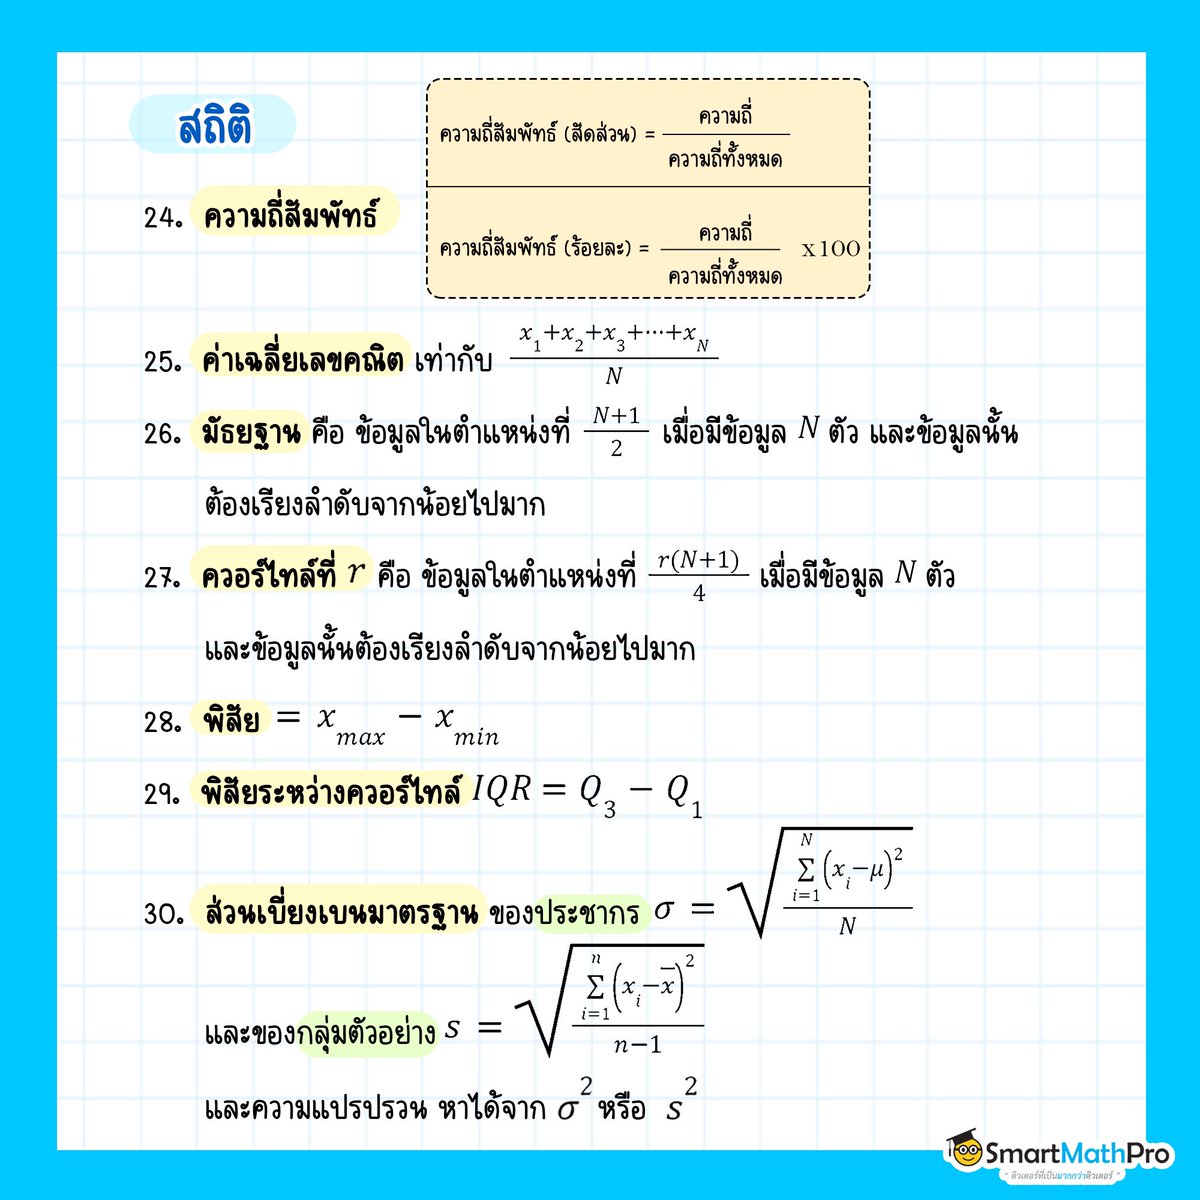 สถิติ
24. ความถี่สัมพัทธ์
ความถี่สัมพัทธ์ (สัดส่วน) = ความถี่ / ความถี่ทั้งหมด
ความถี่สัมพัทธ์ (ร้อยละ) = ความถี่ / ความถี่ทั้งหมด x100
25. ค่าเฉลี่ยเลขคณิต เท่ากับ (x₁+x₂+x₃+⋯+x_N) / N
26. มัธยฐาน คือ ข้อมูลในตำแหน่งที่ (N+1)/2 เมื่อมีข้อมูล N ตัว และข้อมูลนั้น
ต้องเรียงลำดับจากน้อยไปมาก
27. ควอร์ไทล์ที่ r คือ ข้อมูลในตำแหน่งที่ r(N+1)/4 เมื่อมีข้อมูล N ตัว
และข้อมูลนั้นต้องเรียงลำดับจากน้อยไปมาก
28. พิสัย = x_max − x_min
29. พิสัยระหว่างควอร์ไทล์ IQR = Q₃ − Q₁
30. ส่วนเบี่ยงเบนมาตรฐาน ของประชากร σ = √(Σ_{i=1}^{N} (x_i−μ)² / N)
และของกลุ่มตัวอย่าง s = √(Σ_{i=1}^{n} (x_i−x̄)² / (n−1))
และความแปรปรวน หาได้จาก σ² หรือ s²
SmartMathPro
" ติวเตอร์ที่เป็นมากกว่าติวเตอร์ "